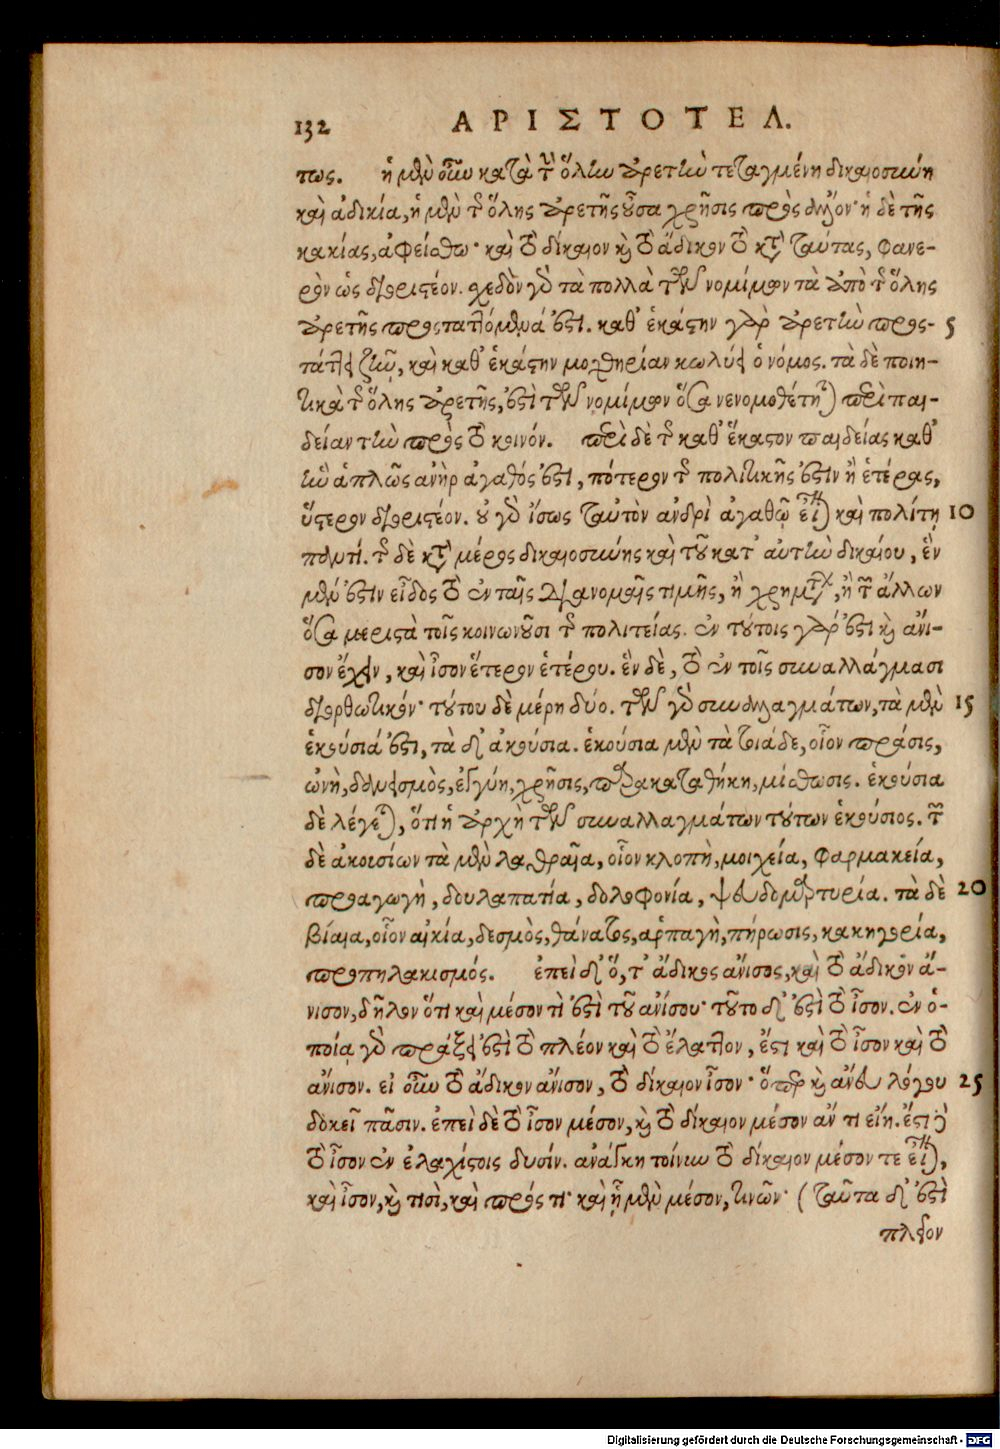 132 ΑΡΙΣΤΟΤΕΛ.
τως. ἡ μὲν οὖν κατὰ τὴν ὅλην ἀρετὴν τεταγμένη δικαιοσύνη
καὶ ἀδικία, ἡ μὲν τῆς ὅλης ἀρετῆς οὖσα χρῆσις πρὸς ἄλλον· ἡ δὲ τῆς
κακίας, ἀφείσθω· καὶ τὸ δίκαιον καὶ τὸ ἄδικον τὸ κατὰ ταύτας, φανε-
ρὸν ὡς διοριστέον. σχεδὸν γὰρ τὰ πολλὰ τῶν νομίμων τὰ ἀπὸ τῆς ὅλης
ἀρετῆς προσταττόμενά ἐστι. καθ' ἑκάστην γὰρ ἀρετὴν προσ- 5
τάττει ζῆν, καὶ καθ' ἑκάστην μοχθηρίαν κωλύει ὁ νόμος. τὰ δὲ ποιη-
τικὰ τῆς ὅλης ἀρετῆς, ἐστὶ τῶν νομίμων ὅσα νενομοθέτηται περὶ παι-
δείαν τὴν πρὸς τὸ κοινόν. περὶ δὲ τῆς καθ' ἕκαστον παιδείας καθ'
ἣν ἁπλῶς ἀνὴρ ἀγαθός ἐστι, πότερον τῆς πολιτικῆς ἐστὶν ἢ ἑτέρας,
ὕστερον διοριστέον. οὐ γὰρ ἴσως ταὐτὸν ἀνδρὶ ἀγαθῷ εἶναι καὶ πολίτῃ 10
παντί. τῆς δὲ κατὰ μέρος δικαιοσύνης καὶ τοῦ κατ' αὐτὴν δικαίου, ἓν
μέν ἐστιν εἶδος τὸ ἐν ταῖς διανομαῖς τιμῆς, ἢ χρημάτων, ἢ τῶν ἄλλων
ὅσα μεριστὰ τοῖς κοινωνοῦσι τῆς πολιτείας. ἐν τούτοις γάρ ἐστι καὶ ἄνι-
σον ἔχειν, καὶ ἴσον ἕτερον ἑτέρου. ἓν δὲ, τὸ ἐν τοῖς συναλλάγμασι
διορθωτικόν· τούτου δὲ μέρη δύο. τῶν γὰρ συναλλαγμάτων, τὰ μὲν 15
ἑκούσιά ἐστι, τὰ δ' ἀκούσια. ἑκούσια μὲν τὰ τοιάδε, οἷον πρᾶσις,
ὠνὴ, δανεισμὸς, ἐγγύη, χρῆσις, παρακαταθήκη, μίσθωσις. ἑκούσια
δὲ λέγεται, ὅτι ἡ ἀρχὴ τῶν συναλλαγμάτων τούτων ἑκούσιος. τῶν
δὲ ἀκουσίων τὰ μὲν λαθραῖα, οἷον κλοπὴ, μοιχεία, φαρμακεία,
προαγωγὴ, δουλαπατία, δολοφονία, ψευδομαρτυρία. τὰ δὲ 20
βίαια, οἷον αἰκία, δεσμὸς, θάνατος, ἁρπαγὴ, πήρωσις, κακηγορία,
προπηλακισμός. ἐπεὶ δ' ὅ, τ' ἄδικος ἄνισος, καὶ τὸ ἄδικον ἄ-
νισον, δῆλον ὅτι καὶ μέσον τί ἐστὶ τοῦ ἀνίσου· τοῦτο δ' ἐστὶ τὸ ἴσον. ἐν ὁ-
ποίᾳ γὰρ πράξει ἐστὶ τὸ πλέον καὶ τὸ ἔλαττον, ἔστι καὶ τὸ ἴσον καὶ τὸ
ἄνισον. εἰ οὖν τὸ ἄδικον ἄνισον, τὸ δίκαιον ἴσον· ὅπερ καὶ ἄνευ λόγου 25
δοκεῖ πᾶσιν. ἐπεὶ δὲ τὸ ἴσον μέσον, καὶ τὸ δίκαιον μέσον ἄν τι εἴη. ἔστι δὲ
τὸ ἴσον ἐν ἐλαχίστοις δυσίν. ἀνάγκη τοίνυν τὸ δίκαιον μέσον τε εἶναι,
καὶ ἴσον, καὶ τισὶ, καὶ πρός τι· καὶ ᾗ μὲν μέσον, τινῶν· (ταῦτα δ' ἐστὶ
πλεῖον
Digitalisierung gefördert durch die Deutsche Forschungsgemeinschaft - DFG